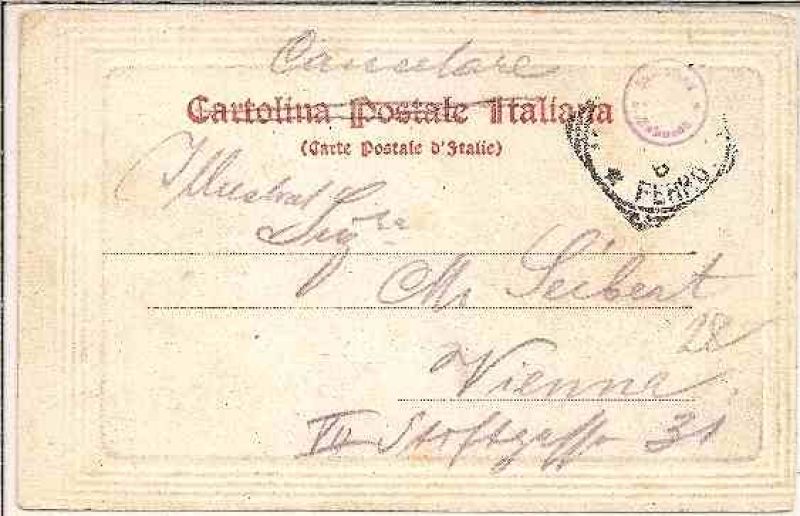 Cartolina Postale Italiana
(Carte Postale d'Italie)
FERRO
Illustrat
Sigra
M. Seibert
28
Vienna
VII Stiftgasse 31